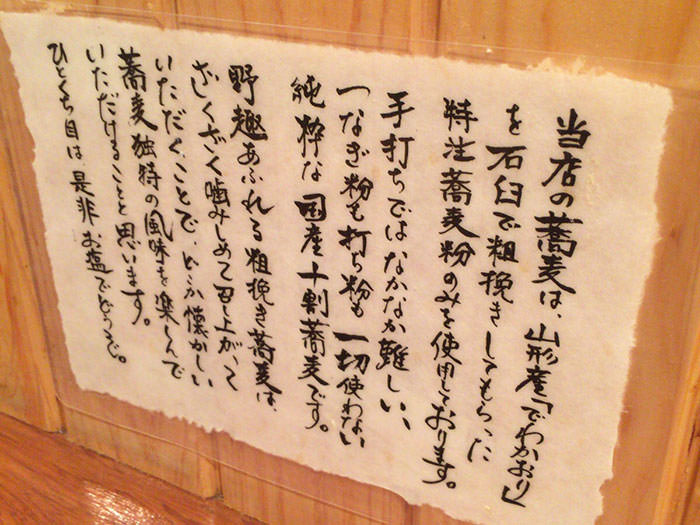 当店の蕎麦は、山形産「でわかおり」
を石臼で粗挽きしてもらった
特注蕎麦粉のみを使用しております。
手打ちではなかなか難しい、
つなぎ粉も打ち粉も一切使わない
純粋な国産十割蕎麦です。
野趣あふれる粗挽き蕎麦は、
ざくざく噛みしめて召し上がって
いただくことで、どこか懐かしい
蕎麦独特の風味を楽しんで
いただけることと思います。
ひとくち目は是非お塩でどうぞ。